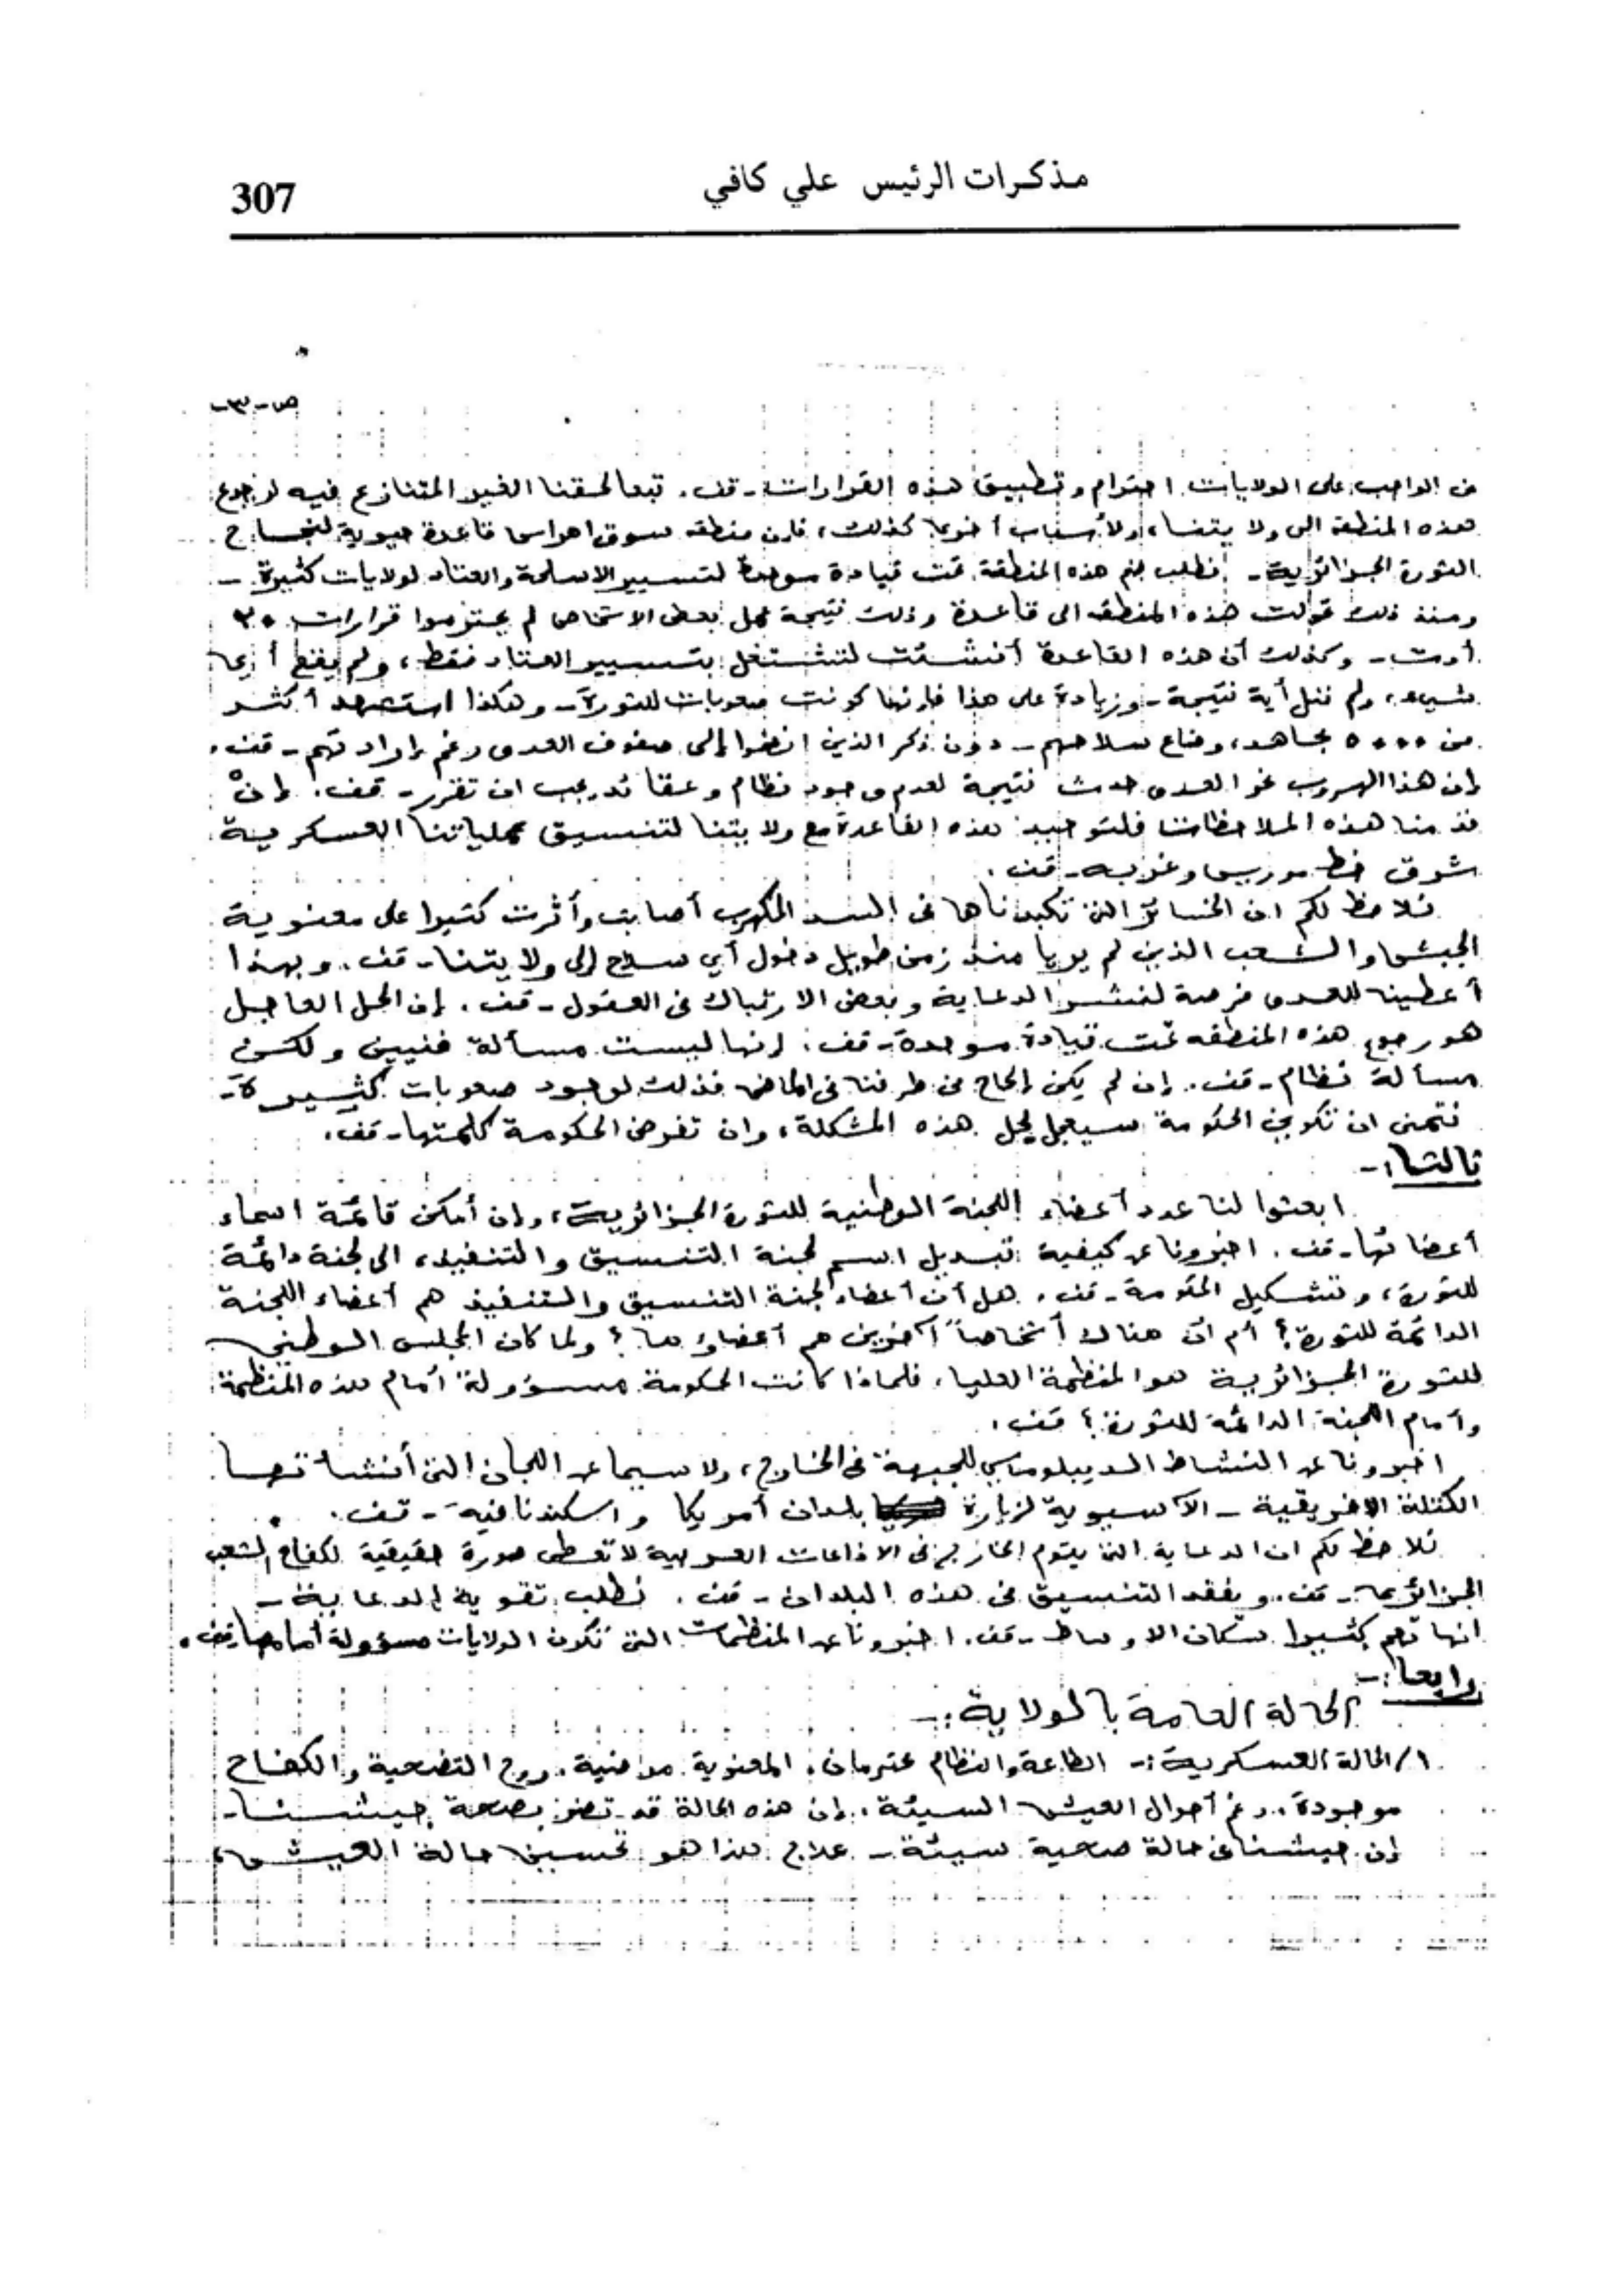 مذكرات الرئيس علي كافي
307
ص-٣-
من الواجب على الولايات احترام وتطبيق هذه القرارات - قف. تبعا لحقنا الغير المتنازع فيه لرجوع
هذه المنطقة الى ولايتنا، ولأسباب أخرى كذلك، فإن منطقة سوق اهراس قاعدة حيوية لنجاح
الثورة الجزائرية - نطلب ضم هذه المنطقة تحت قيادة موحدة لتسيير الاسلحة والعتاد لولايات كثيرة -
ومنذ ذلك تحولت هذه المنطقة الى قاعدة وذلك نتيجة عمل بعض الاشخاص لم يحترموا قرارات ٢٠
أوت - وكذلك أن هذه القاعدة أنشئت لتشتغل بتسيير العتاد فقط، ولم يفعل أي
شيء، ولم ننل أية نتيجة - وزيادة على هذا فإنها كونت صعوبات للثورة - وهكذا استشهد أكثر
من ٥٠٠٠ مجاهد، وضاع سلاحهم - دون ذكر الذين انضموا إلى صفوف العدو رغم إرادتهم - قف.
إن هذا الهروب نحو العدو حدث نتيجة لعدم وجود نظام وعقائد يجب ان تقرر - قف. إن
قدمنا هذه الملاحظات فلتوحيد هذه القاعدة مع ولايتنا لتنسيق عملياتنا العسكرية
شرق خط موريس وغربه - قف.
نلاحظ لكم ان الخسائر التي تكبدناها في السد المكهرب أصابت وأثرت كثيرا على معنوية
الجيش والشعب الذين لم يريا منذ زمن طويل دخول أي سلاح إلى ولايتنا - قف. وبهذا
أعطينا للعدو فرصة لنشر الدعاية وبعض الارتباك في العقول - قف. إن الحل العاجل
هو رجوع هذه المنطقة تحت قيادة موحدة - قف. إنها ليست مسألة فنيين ولكن
مسألة نظام - قف. إن لم يكن إلحاح من طرفنا في الماضي فذلك لوجود صعوبات كثيرة -
نتمنى ان تكوين الحكومة سيعجل بحل هذه المشكلة، وان تفرض الحكومة كلمتها - قف.
ثالثا:-
ابعثوا لنا عدد أعضاء اللجنة الوطنية للثورة الجزائرية، وإن أمكن قائمة اسماء
أعضائها - قف. اخبرونا عن كيفية تبديل اسم لجنة التنسيق والتنفيذ، الى لجنة دائمة
للثورة، وتشكيل الحكومة - قف. هل أن أعضاء لجنة التنسيق والتنفيذ هم أعضاء اللجنة
الدائمة للثورة؟ أم انّ هناك أشخاصاً آخرين هم أعضاؤها؟ ولما كان المجلس الوطني
للثورة الجزائرية هو المنظمة العليا، فلماذا كانت الحكومة مسؤولة أمام هذه المنظمة
وأمام اللجنة الدائمة للثورة؟ قف.
اخبرونا عن النشاط الديبلوماسي للجبهة في الخارج، ولا سيما عن اللجان التي أنشأتها
الكتلة الافريقية - الآسيوية لزيارة بلدان أمريكا واسكندنافية - قف.
نلاحظ لكم ان الدعاية التي يقوم بها في الاذاعات العربية لا تعطي صورة حقيقية لكفاح الشعب
الجزائري - قف. ويفقد التنسيق في هذه البلدان - قف. نطلب تقوية الدعاية -
انها تهم كثيرا سكان الاوساط - قف. اخبرونا عن المنظمات التي تكون الولايات مسؤولة أمامها - قف.
رابعا:-
الحالة العامة بالولاية:-
١/ الحالة العسكرية:- الطاعة والنظام محترمان، المعنوية مرضية. روح التضحية والكفاح
موجودة. رغم أحوال العيش السيئة، إن هذه الحالة قد تضر بصحة جيشنا -
إن جيشنا في حالة صحية سيئة - علاج هذا هو تحسين حالة العيش،